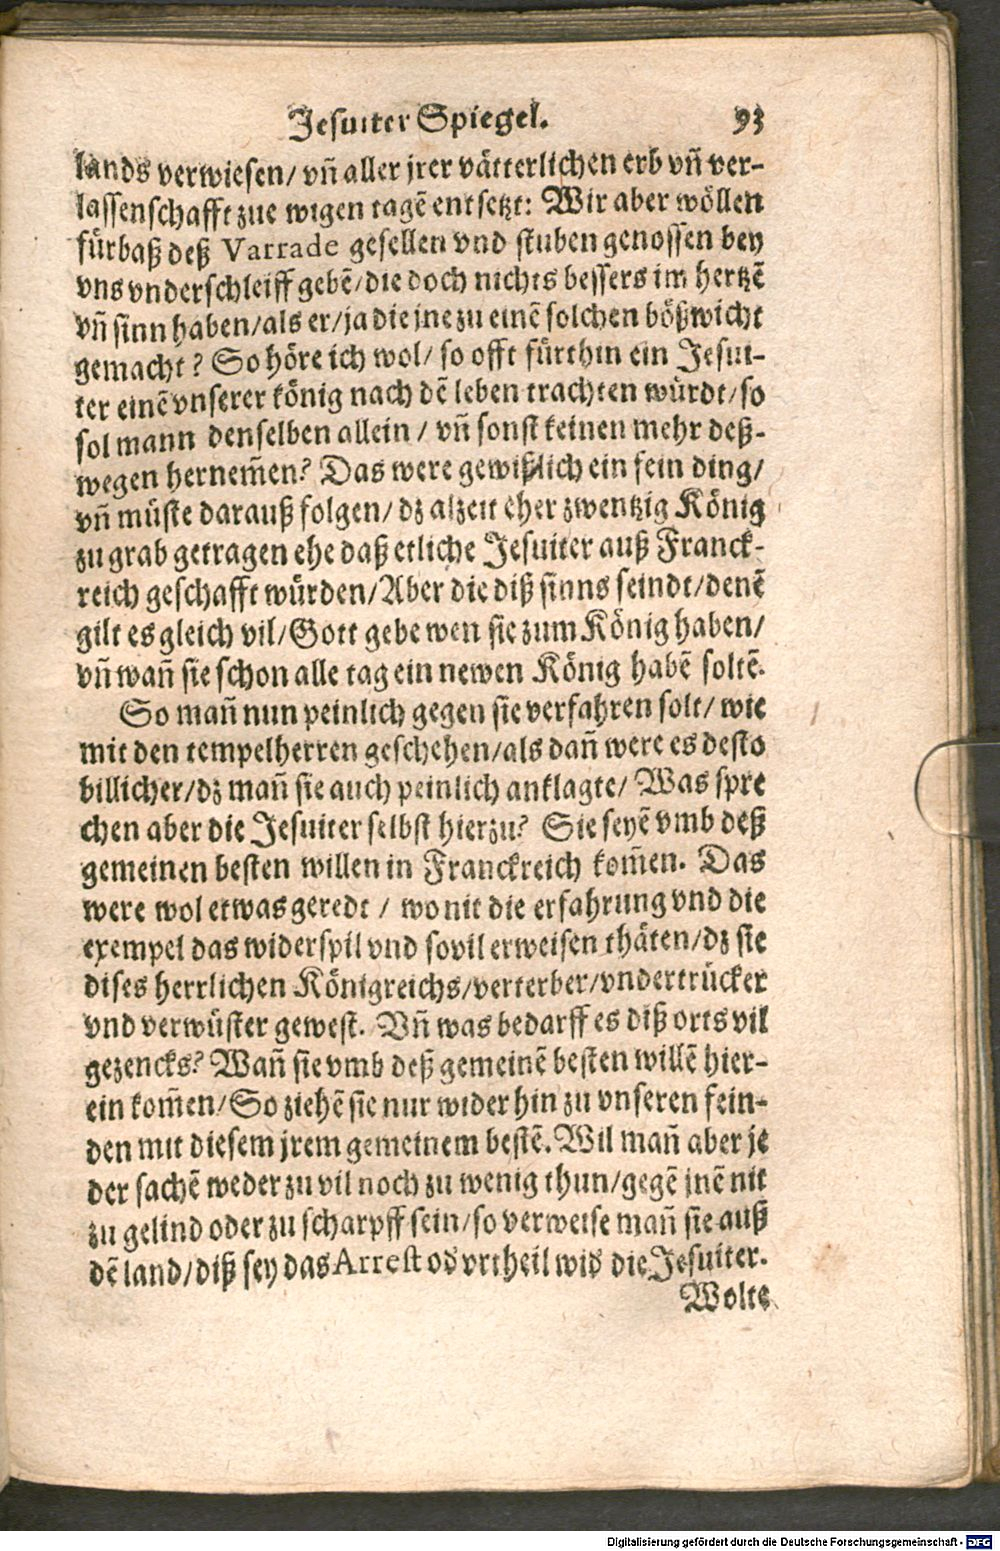 Jesuiter Spiegel. 93
lands verwiesen/ vñ aller jrer vätterlichen erb vñ ver-
lassenschafft zue wigen tagẽ entsetzt: Wir aber wöllen
fürbaß deß Varrade gesellen vnd stuben genossen bey
vns vnderschleiff gebẽ/die doch nichts bessers im hertzẽ
vñ sinn haben/als er/ja die jne zu einẽ solchen bößwicht
gemacht? So höre ich wol/ so offt fürthin ein Jesui-
ter einẽ vnserer könig nach dẽ leben trachten würdt/so
sol mann denselben allein/ vñ sonst keinen mehr deß-
wegen hernem̃en? Das were gewißlich ein fein ding/
vñ müste darauß folgen/ dz alzeit eher zwentzig König
zu grab getragen ehe daß etliche Jesuiter auß Franck-
reich geschafft würden/Aber die diß sinns seindt/denẽ
gilt es gleich vil/Gott gebe wen sie zum König haben/
vñ wañ sie schon alle tag ein newen König habẽ soltẽ.
So mañ nun peinlich gegen sie verfahren solt/ wie
mit den tempelherren geschehen/als dañ were es desto
billicher/dz mañ sie auch peinlich anklagte/ Was spre
chen aber die Jesuiter selbst hierzu? Sie seyẽ vmb deß
gemeinen besten willen in Franckreich kom̃en. Das
were wol etwas geredt / wo nit die erfahrung vnd die
exempel das widerspil vnd sovil erweisen thäten/dz sie
dises herrlichen Königreichs/verterber/vndertrücker
vnd verwüster gewest. Vñ was bedarff es diß orts vil
gezencks? Wañ sie vmb deß gemeinẽ besten willẽ hier-
ein kom̃en/So ziehẽ sie nur wider hin zu vnseren fein-
den mit diesem jrem gemeinem bestẽ. Wil mañ aber je
der sachẽ weder zu vil noch zu wenig thun/gegẽ jnẽ nit
zu gelind oder zu scharpff sein/so verweise mañ sie auß
dẽ land/diß sey das Arrest oď vrtheil wiď die Jesuiter.
Wolte
Digitalisierung gefördert durch die Deutsche Forschungsgemeinschaft - DFG